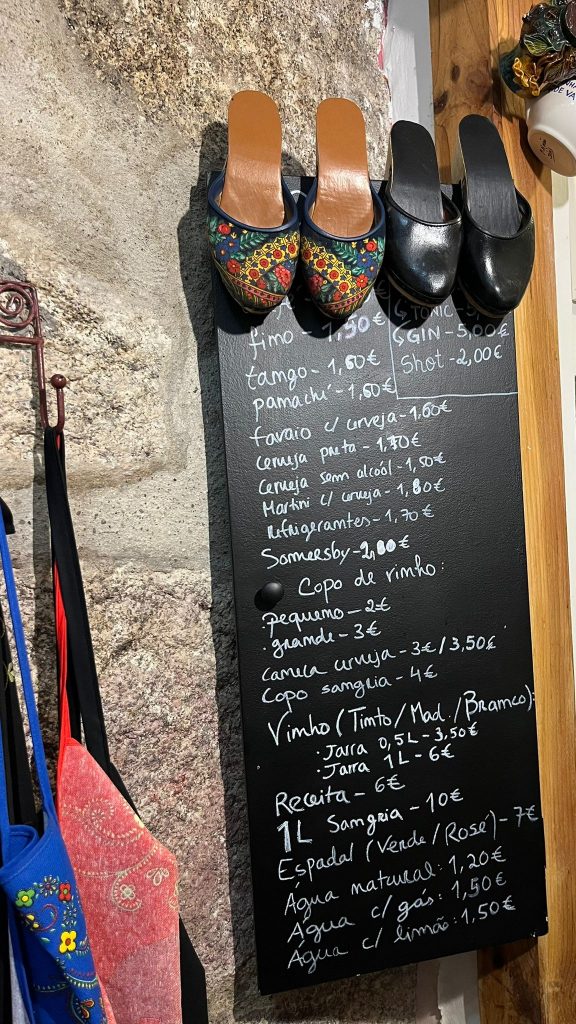 fimo - 1,50€
tango - 1,60€
panachi - 1,60€
↳ TONIC -
↳ GIN - 5,00€
Shot - 2,00€
favaio c/ cerveja - 1,60€
cerveja preta - 1,70€
cerveja sem alcoól - 1,50€
Martini c/ cerveja - 1,80€
Refrigerantes - 1,70€
Somersby - 2,80€
Copo de vinho:
pequeno - 2€
. grande - 3€
caneca cerveja - 3€ / 3,50€
Copo sangria - 4€
Vinho (Tinto / Mad. / Branco):
· Jarra 0,5L - 3,50€
· Jarra 1L - 6€
Receita - 6€
1L Sangria - 10€
Espadal (Verde / Rosé) - 7€
Água natural: 1,20€
Água c/ gás: 1,50€
Água c/ limão: 1,50€